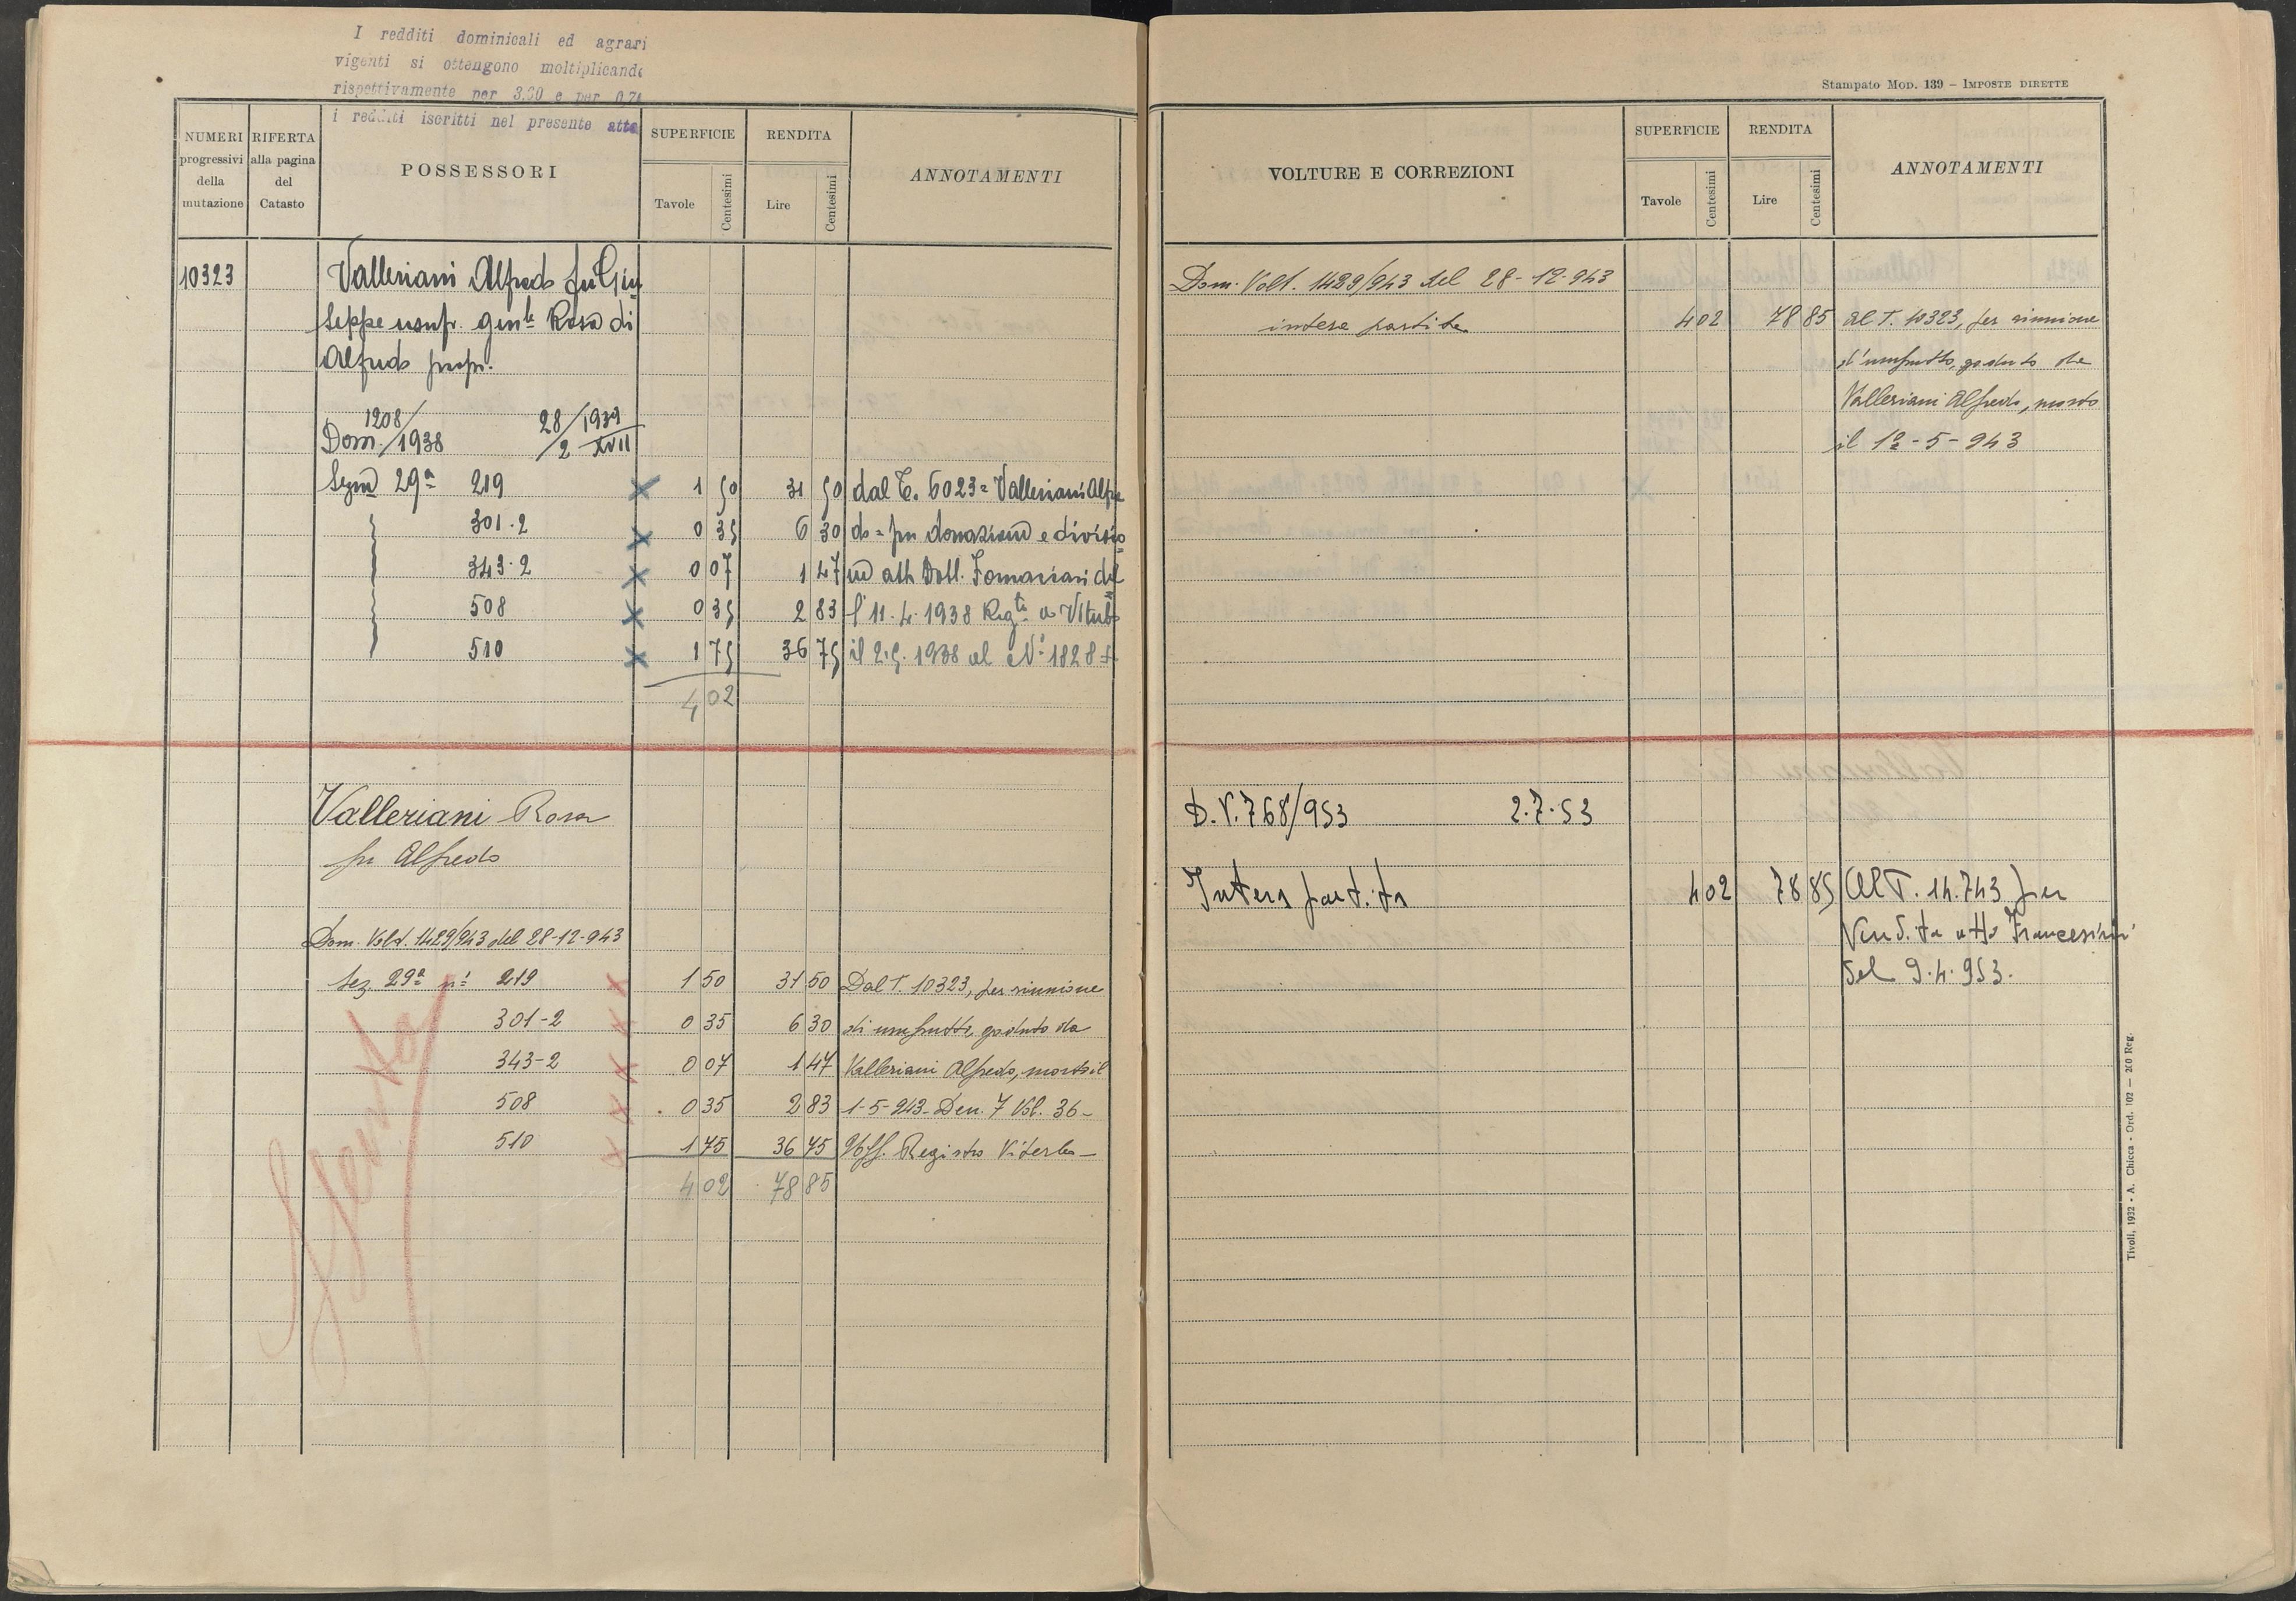 I redditi dominicali ed agrari
vigenti si ottengono moltiplicando
rispettivamente per 3,30 e per 0,74
i redditi iscritti nel presente atto
NUMERI progressivi della mutazione
RIFERTA alla pagina del Catasto
POSSESSORI
SUPERFICIE
Tavole
Centesimi
RENDITA
Lire
Centesimi
ANNOTAMENTI
10323 Valleriani Alfredo fu Giu
seppe usufr. gen.le Rosa di
Alfredo propr.
1208/ 28/1939
Dom./1938 /2 XVII
Sezne 29ª 219 x 1 50 31 50 dal T. 6023 = Valleriani Alfre
301.2 x 0 35 6 30 do = per donazione e divisio
343.2 x 0 07 1 47 ne atti Dott. Fornaciari del
508 x 0 35 2 83 l'11.4.1938 Regto a Viterbo
510 x 1 75 36 75 il 2.5.1938 al No 1828 =
4 02
Valleriani Rosa
fu Alfredo
Dom. Volt. 1429/943 del 28-12-943
Sez. 29ª ni 219 x 1 50 31 50 Dal T. 10323, per riunione
301-2 x 0 35 6 30 di usufrutto goduto da
343-2 x 0 07 1 47 Valleriani Alfredo, morto il
508 x 0 35 2 83 1-5-943 - Den. 7 Vol. 36 -
510 x 1 75 36 75 Uff. Registro Viterbo -
4 02 78 85
Stampato MOD. 139 – IMPOSTE DIRETTE
VOLTURE E CORREZIONI
SUPERFICIE
Tavole
Centesimi
RENDITA
Lire
Centesimi
ANNOTAMENTI
Dom. Volt. 1429/943 del 28-12-943
intera partita 4 02 78 85 al T. 10323, per riunione
d'usufrutto, goduto da
Valleriani Alfredo, morto
il 1º-5-943
D.V. 768/953 2.7.53
Intera partita 4 02 78 85 Al T. 14.743 per
Vendita atto Francesini
del 9.4.953.
Tivoli, 1932 - A. Chicca - Ord. 102 — 200 Reg.